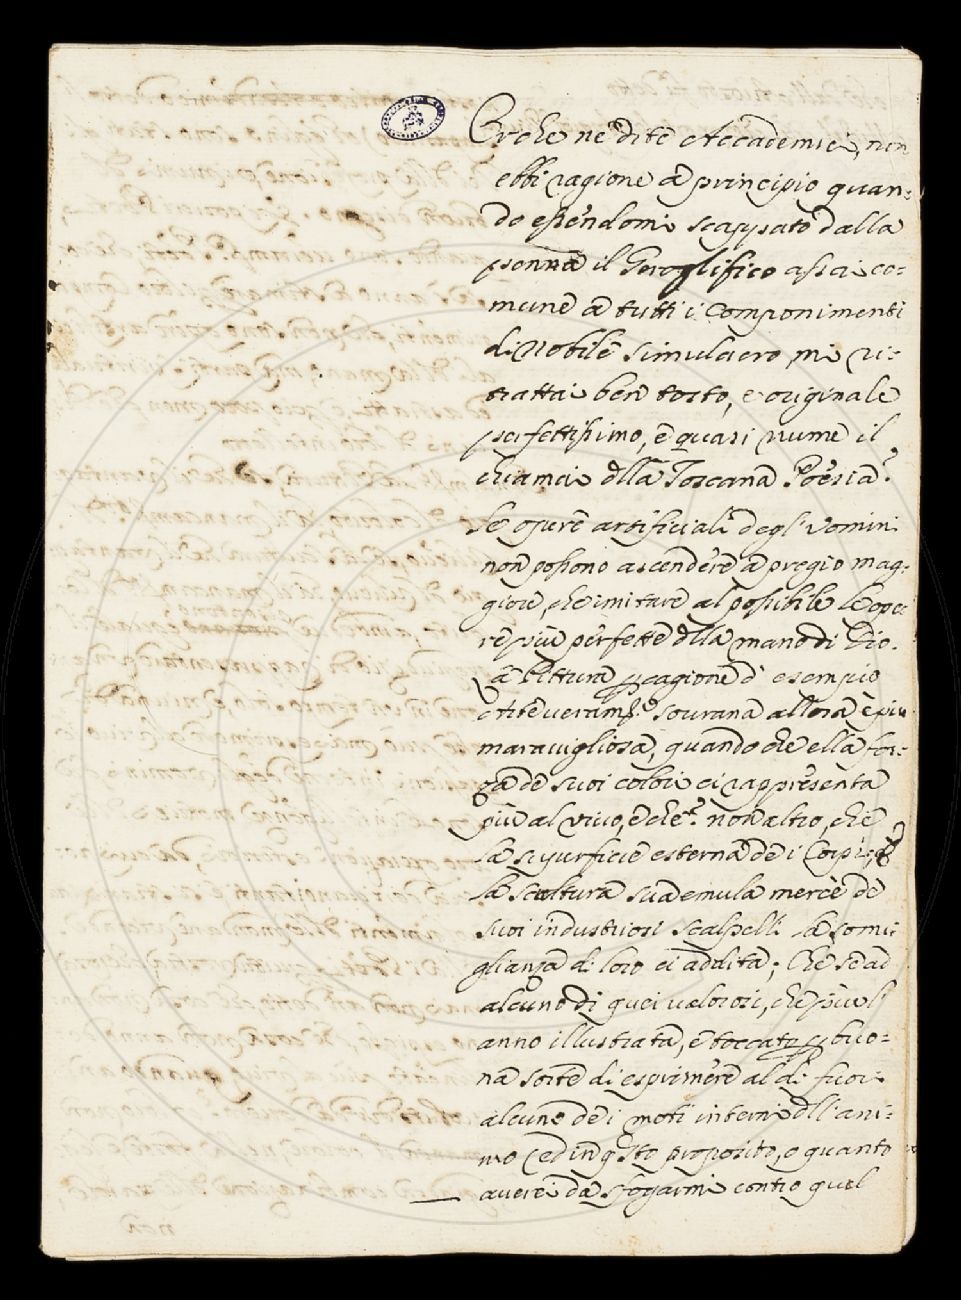 Or che ne dite Accademici, non
ebbi ragione à principio quan-
do essendomi scappato dalla
penna il Geroglifico assai co-
mune à tutti i Componimenti
di Nobile simulacro, mi ri-
trattai ben tosto, e originale
perfettissimo, è quasi nume il
chiamai dlla Toscana Poesia?
Se opure artificiali degl' Uomini
non possono ascendere à pregio mag-
giore, che imitare al possibile le ope-
re più perfette dlla mano di Dio.
La Pittura p cagione d' esempio
Arte veram.e sourana allora è più
maravigliosa, quando che ella for-
za de suoi colori ci rappresenta
più al vivo, è che? non altro, che
la superficie esterna de i Corpi; e
la scultura sua emula mercè de
suoi industriosi scalpelli la somi-
glianza di loro ci addita; Che se ad
alcuno di quei valorosi, che più l'
anno illustrata, è toccato p buo-
na sorte di esprimere al di fuori
alcuno de i moti interni dll' ani-
mo (ed in qsto proposito, o quanto
averei da sfogarmi contro quel